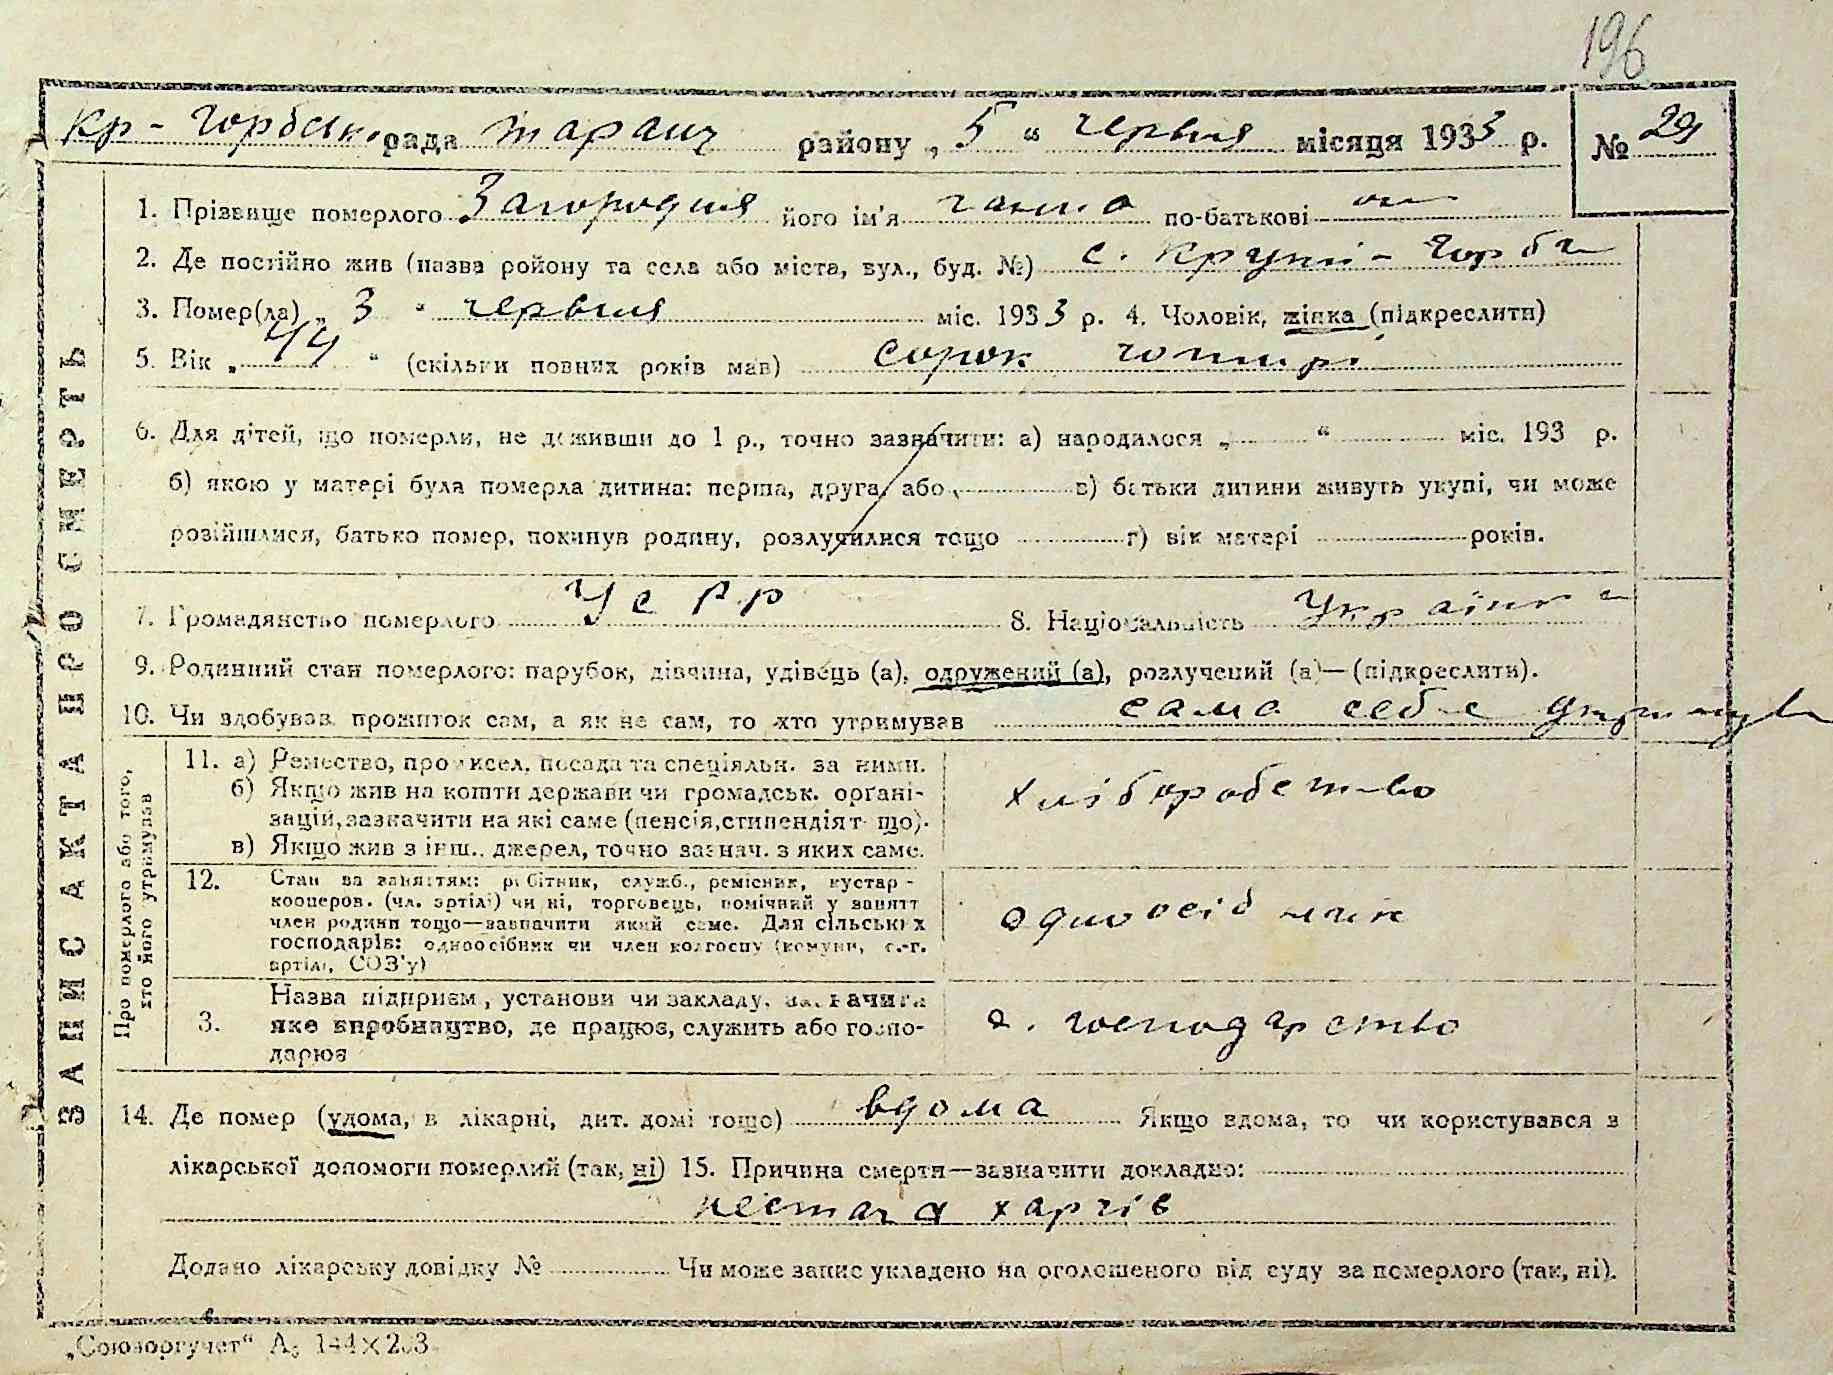 196
Кр-Горбськ. рада Таращ району „5“ червня місяця 1933 р. № 29
ЗАПИС АКТА ПРО СМЕРТЬ
1. Прізвище померлого Загородня його ім'я Ганна по-батькові
2. Де постійно жив (назва ройону та села або міста, вул., буд. №) с. Круті-Горби
3. Помер(ла) „3“ червня міс. 1933 р. 4. Чоловік, жінка (підкреслити)
5. Вік „44“ (скільки повних років мав) сорок чотирі
6. Для дітей, що померли, не доживши до 1 р., точно зазначити: а) народилося „ “ міс. 193 р.
б) якою у матері була померла дитина: перша, друга, або в) батьки дитини живуть укупі, чи може
розійшлися, батько помер, покинув родину, розлучилися тощо г) вік матері років.
7. Громадянство померлого УСРР 8. Національність Українка
9. Родинний стан померлого: парубок, дівчина, удівець (а), одружений (а), розлучений (а)—(підкреслити).
10. Чи здобував прожиток сам, а як не сам, то хто утримував сама себе
Про померлого або того, хто його утримував
11. а) Ремество, промисел, посада та спеціяльн. за ними. хліборобство
б) Якщо жив на кошти держави чи громадськ. органі-
зацій, зазначити на які саме (пенсія, стипендія т що).
в) Якщо жив з інш. джерел, точно зазнач. з яких саме.
12. Стан за заняттям: робітник, служб., ремісник, кустар - одноосібник
кооперов. (чл. артілі) чи ні, торговець, помічний у занятт
член родини тощо—зазначити який саме. Для сільських
господарів: одноосібник чи член колгоспу (комуни, с.-г.
артілі, СОЗ'у)
3. Назва підприєм, установи чи закладу, зазначити
яке виробництво, де працює, служить або госпо- господарство
дарює
14. Де помер (удома, в лікарні, дит. домі тощо) вдома Якщо вдома, то чи користувався з
лікарської допомоги померлий (так, ні) 15. Причина смерти—зазначити докладно:
нестача харчів
Додано лікарську довідку № Чи може запис укладено на оголошеного від суду за померлого (так, ні).
„Союзоргучет“ А5 144×203